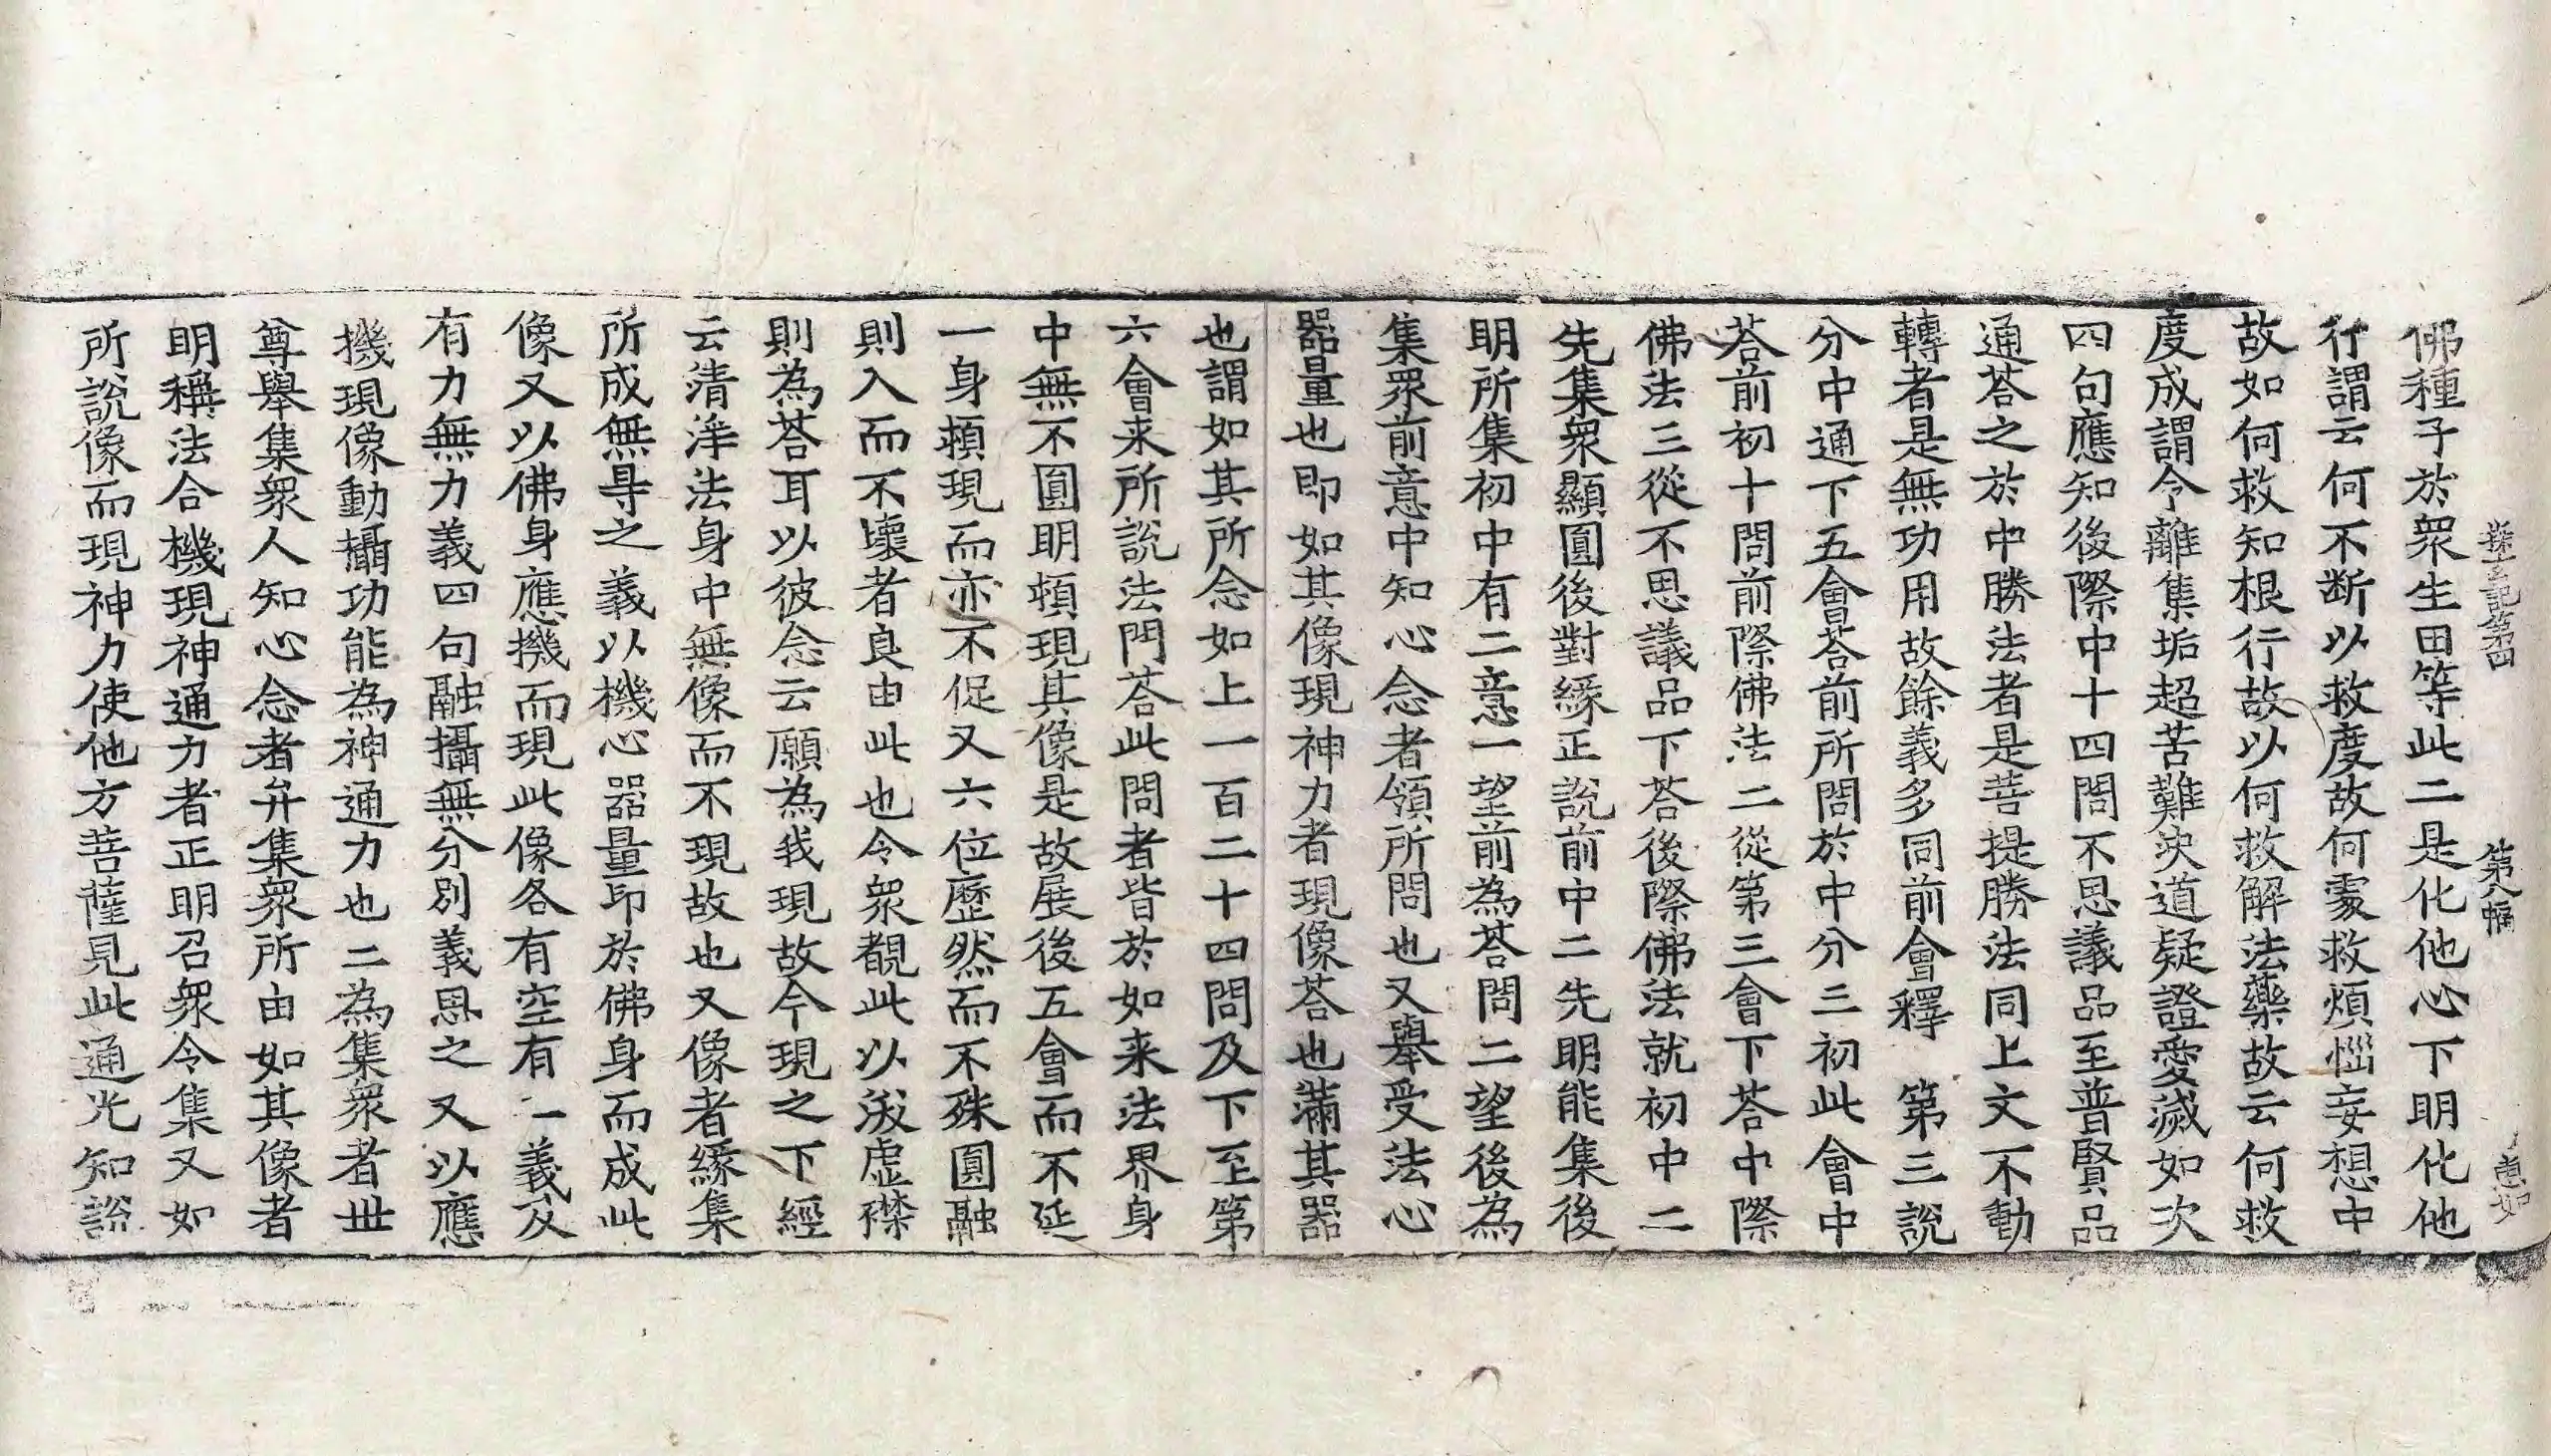 探玄記第四 第八幅 惠如
佛種子於衆生田等此二是化他心下明化他
行謂云何不断以救度故何䝉救煩惱妄想中
故如何救知根行故以何救解法藥故云何救
度成謂令離集垢超苦難决道疑證愛滅如次
四句應知後際中十四問不思議品至普賢品
通荅之於中勝法者是菩提勝法同上文不動
轉者是無功用故餘義多同前會釋 第三說
分中通下五會荅前所問於中分三初此會中
荅前初十問前際佛法二從第三會下荅中際
佛法三從不思議品下荅後際佛法就初中二
先集衆顯圓後對緣正說前中二先明能集後
明所集初中有二意一望前為荅問二望後為
集衆前意中知心念者領所問也又舉受法心
器量也即如其像現神力者現像荅也滿其器
也謂如其所念如上一百二十四問及下至第
六會来所說法門荅此問者皆於如来法界身
中無不圓明頓現其像是故展後五會而不延
一身頓現而亦不促又六位歷然而不殊圓融
則入而不壞者良由此也令衆覩此以波虛襟
則為荅耳以彼念云願為我現故今現之下經
云清淨法身中無像而不現故也又像者緣集
所成無㝵之義以機心器量印於佛身而成此
像又以佛身應機而現此像各有空有一義及
有力無力義四句融攝無分別義思之又以應
機現像動攝功能為神通力也二為集衆者世
尊舉集衆人知心念者弁集衆所由如其像者
明稱法合機現神通力者正明召衆令集又如
所說像而現神力使他方菩薩見此通光知說